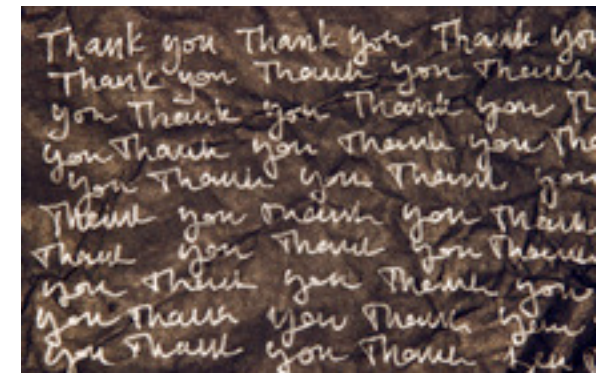 Thank you Thank you Thank you
Thank you Thank you Thank
you Thank you Thank you
you Thank you Thank you
you Thank you Thank you
Thank you Thank you Thank
Thank you Thank you Thank
you Thank you Thank you
you Thank you Thank you
you Thank you Thank you